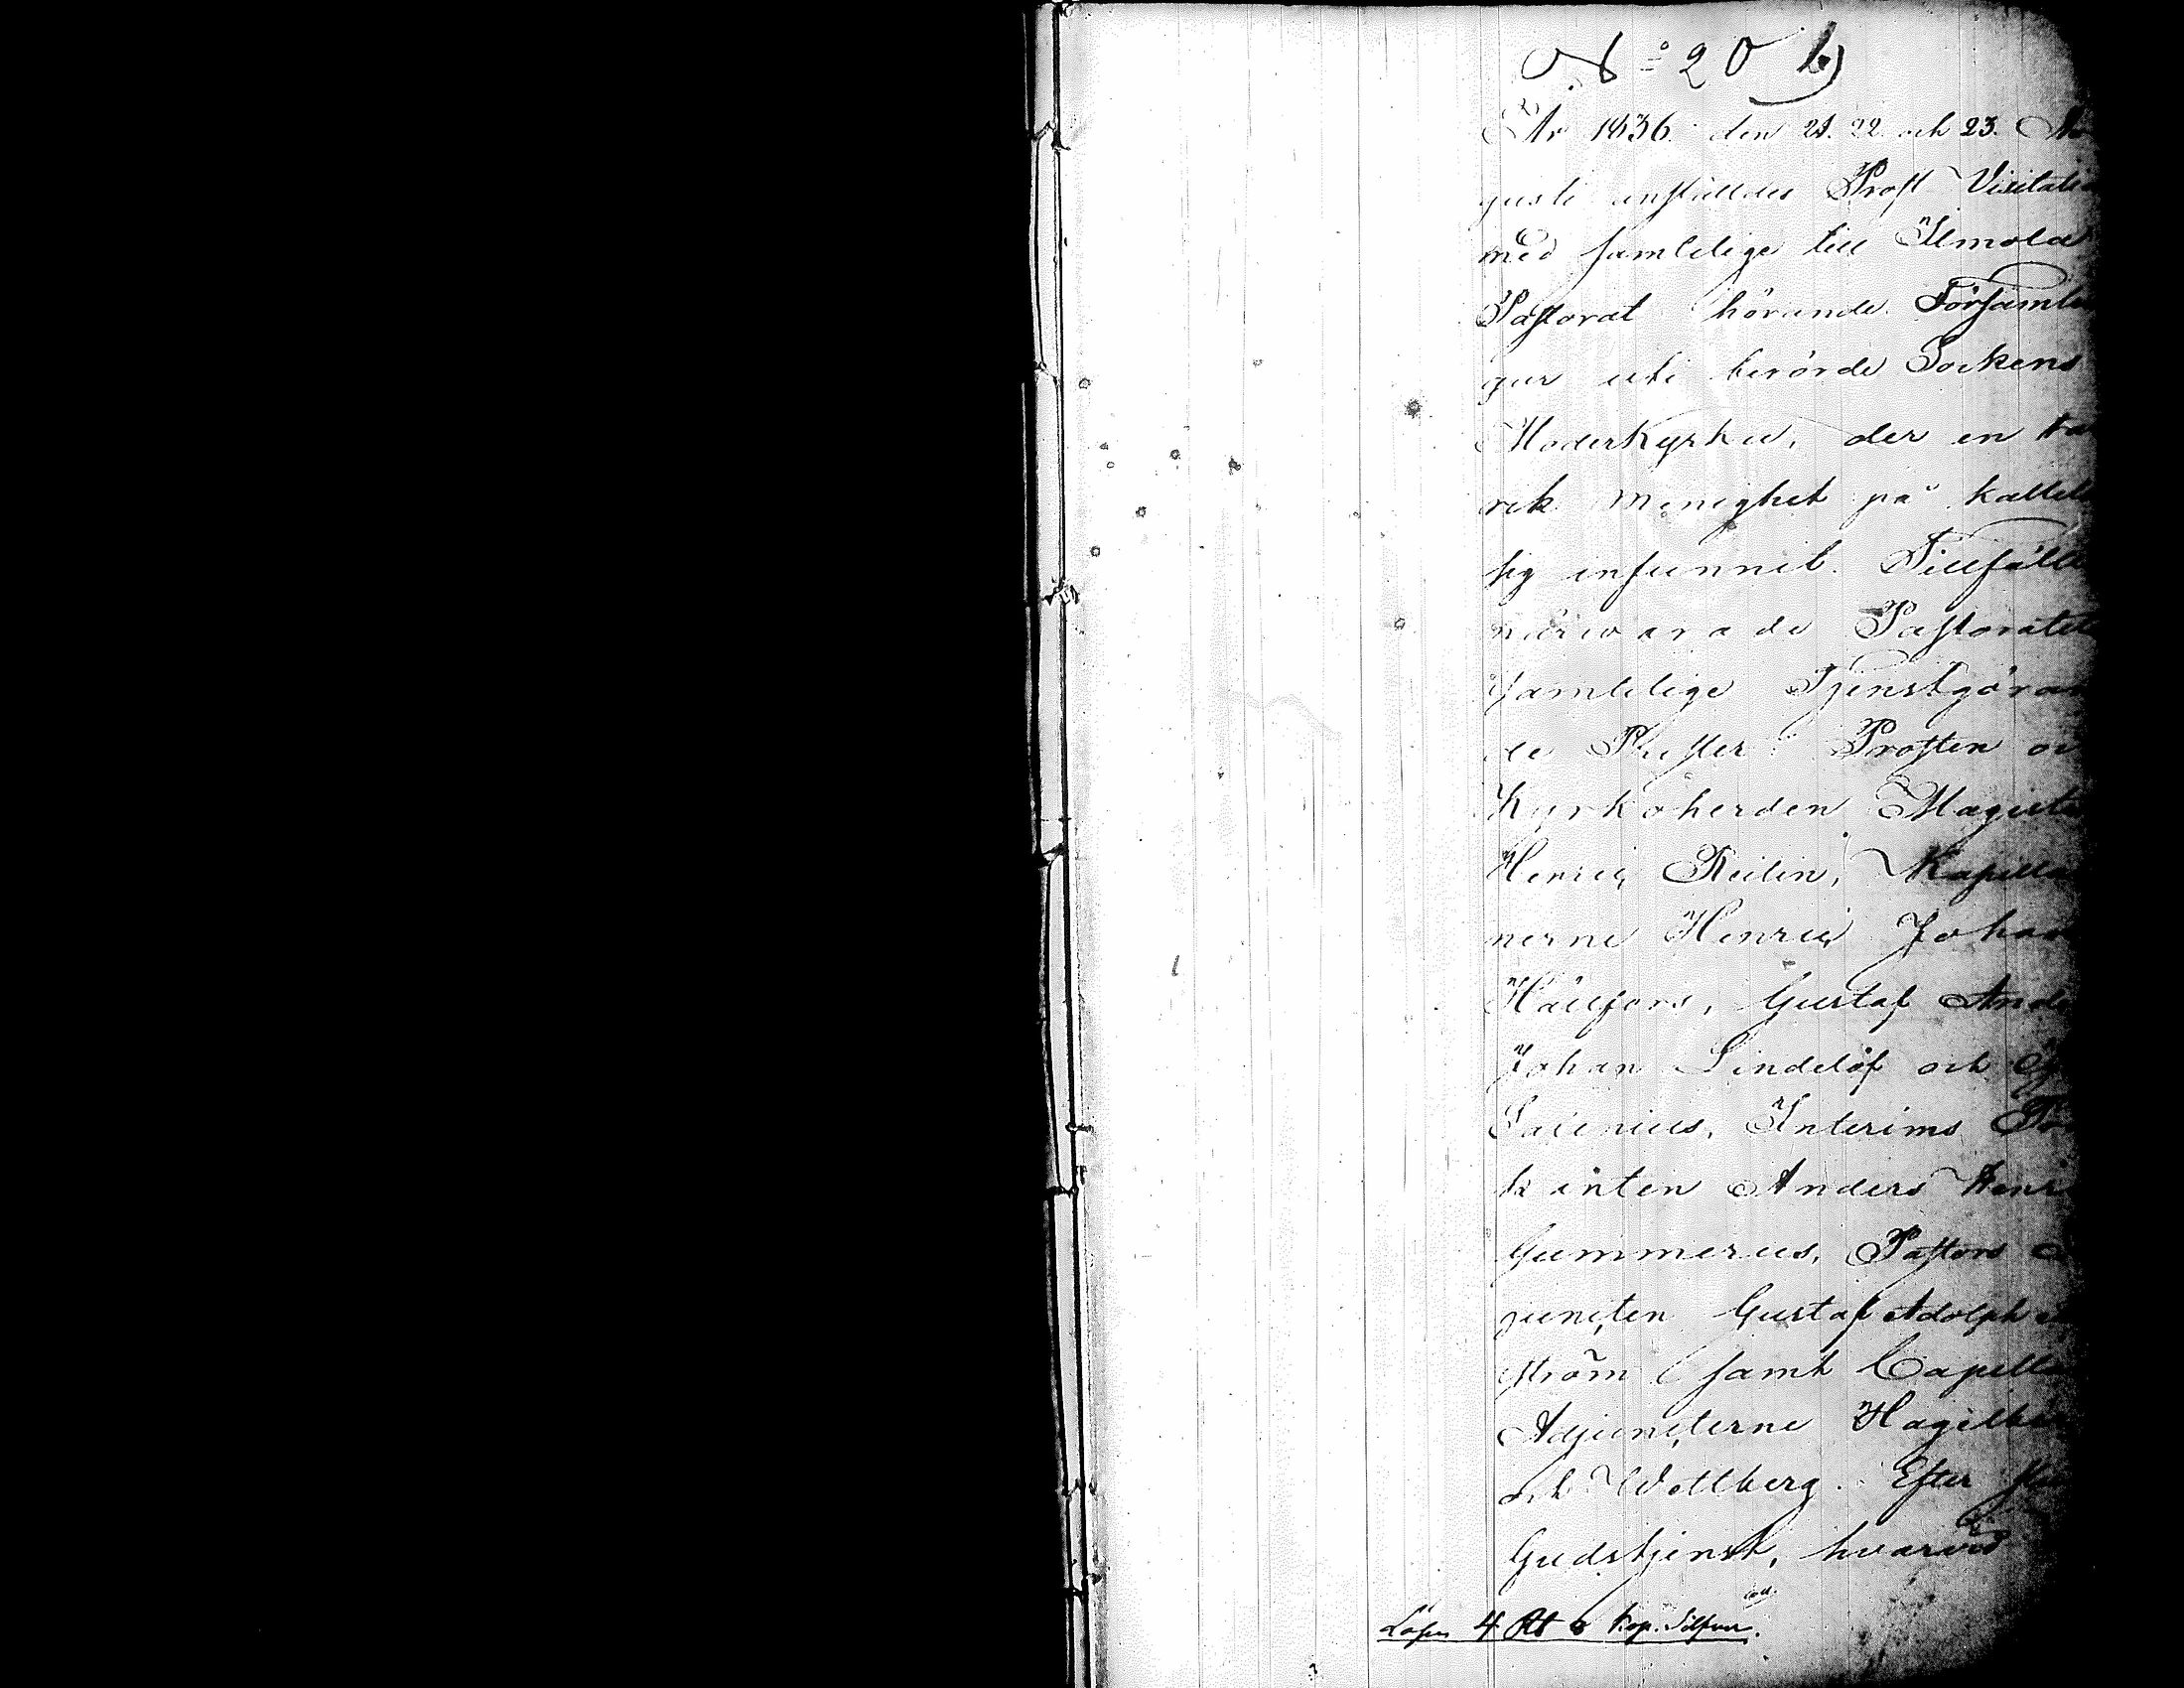 No 20 b)
År 1836 den 21. 22. och 23. Au
gusti anställdes Prost Visitatio
med samtelige till Ilmola
Pastorat hörande Församlin
gar uti berörde Sockens
Moderkyrka, der en tal
rik menighet på kallel
sig infunnit. Tillfälle
närwarade Pastoratet
samtelige Tjenstgöran
de Prester: Prosten oc
Kyrkoherden Magiste
Henric Heilin, Kapella
nerne Henric Johan
Hällfors, Gustaf Ande
Johan Lindelöf och
Salenius, Interims
kanten Anders Henr
Gummerus, Pastors A
juncten Gustaf Adolph
ström samt Capella
Adjuncterne Hagelber
och Wollberg. Efter
Gudstjenst, hvarvid
Lösen 4 Rb kop. Silfver.